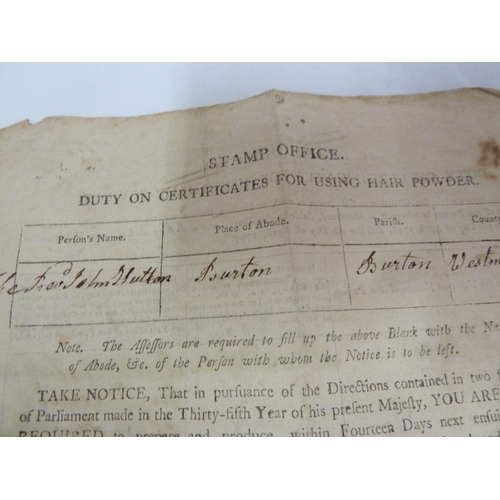 STAMP OFFICE.
DUTY ON CERTIFICATES FOR USING HAIR POWDER.
Perſon's Name. Place of Abode. Pariſh. Count
Revd John Hutton Burton Burton Westm
Note. The Aſſeſſors are required to fill up the above Blank with the Na
of Abode, &c. of the Perſon with whom the Notice is to be left.
TAKE NOTICE, That in purſuance of the Directions contained in two
of Parliament made in the Thirty-fifth Year of his preſent Majeſty, YOU ARE
REQUIRED to prepare and produce, within Fourteen Days next enſui